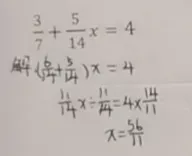 3/7 + 5/14 x = 4
解(6/14 + 5/14)x = 4
11/14 x ÷ 11/14 = 4 × 14/11
x = 56/11